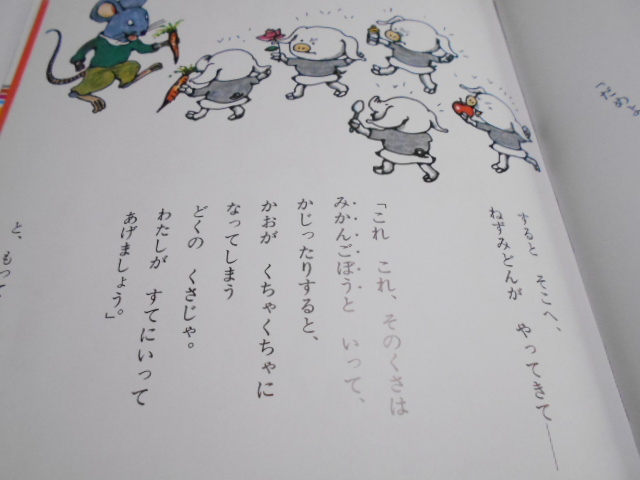 すると そこへ、
ねずみどんが やってきて――
「これ これ、そのくさは
みかんごぼうと いって、
かじったりすると、
かおが くちゃくちゃに
なってしまう
どくの くさじゃ。
わたしが すてにいって
あげましょう。」
と、もって